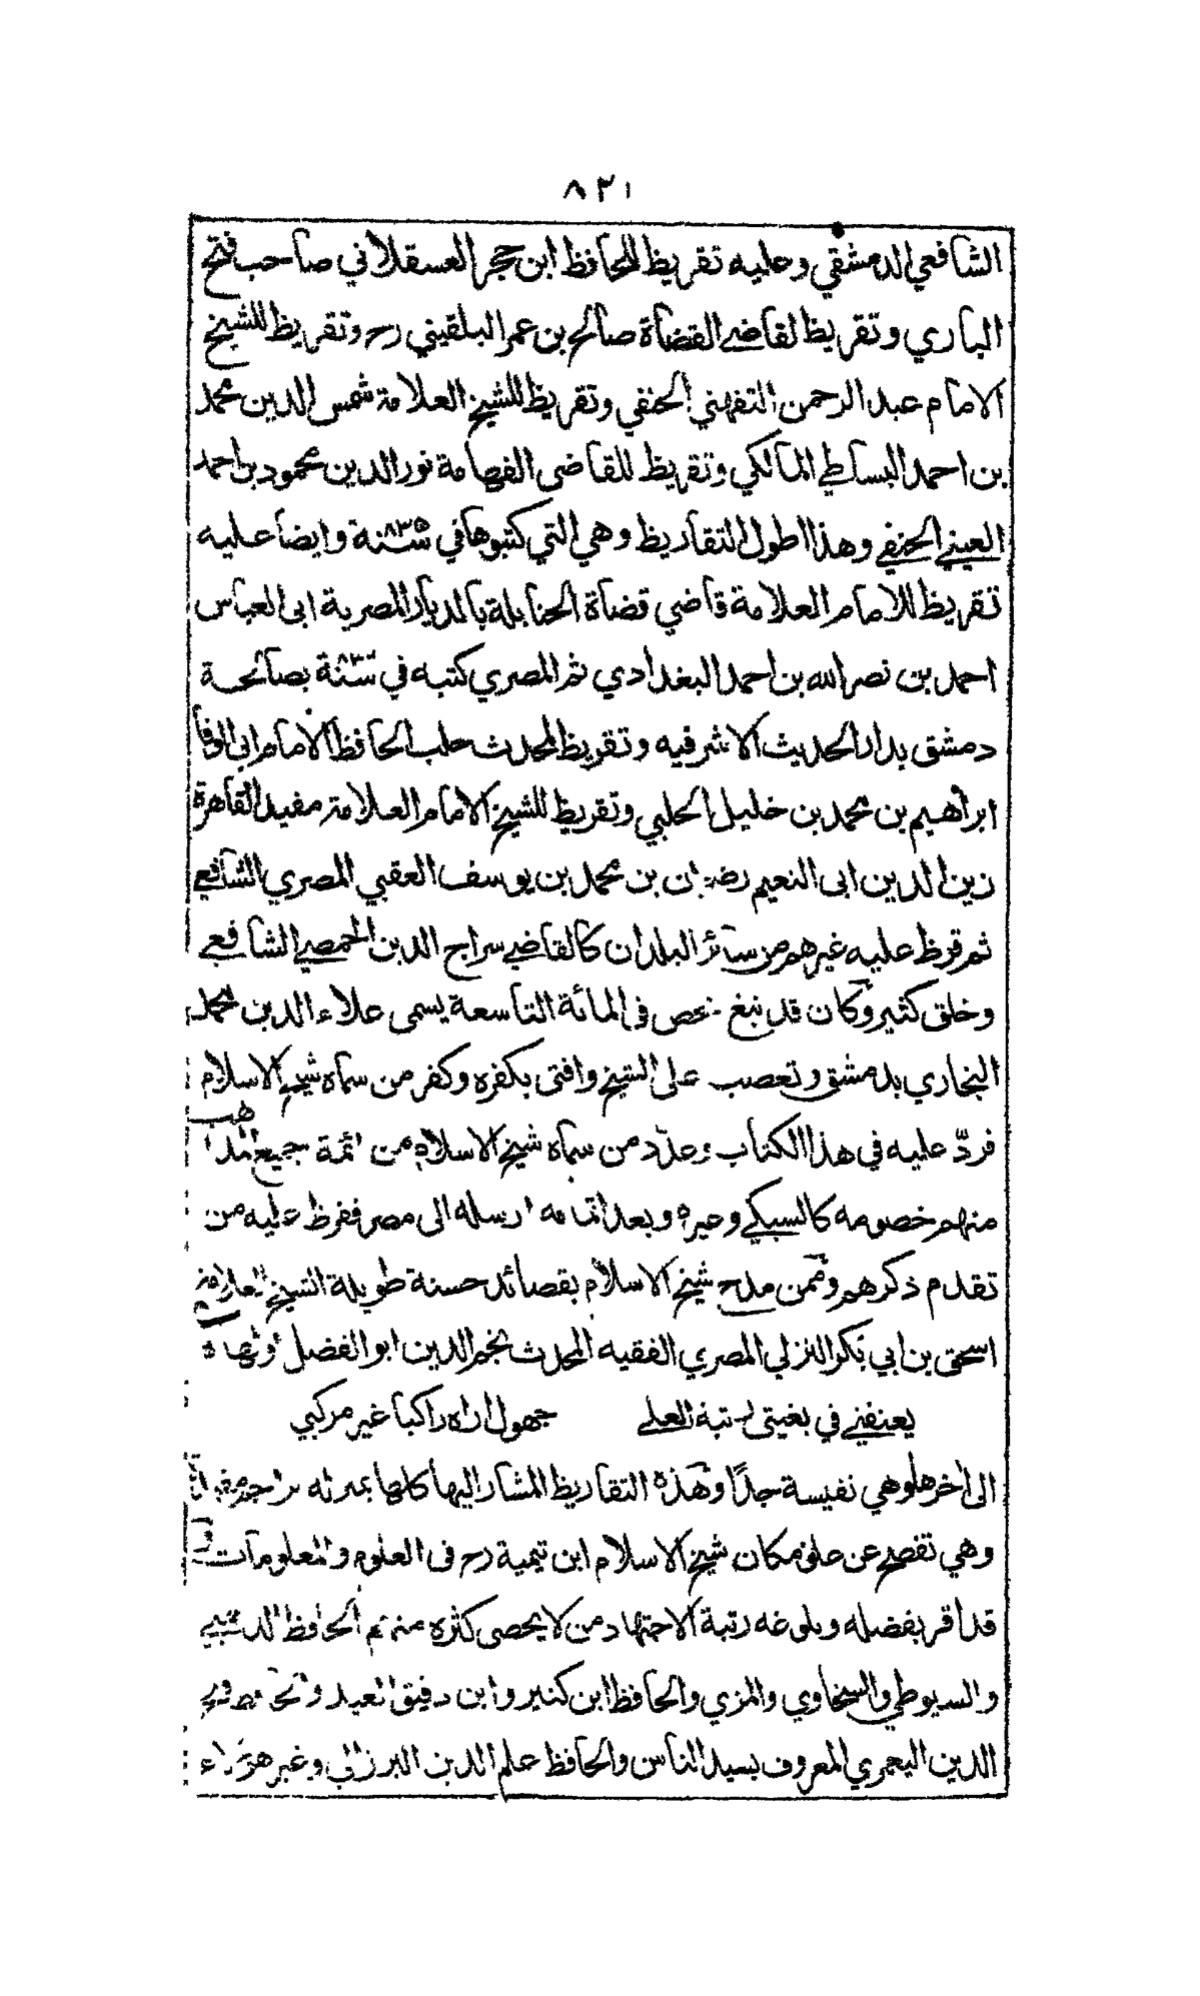 ٨٢١
الشافعي الدمشقي وعليه تقريظ للحافظ ابن حجر العسقلاني صاحب فتح
الباري وتقريظ لقاضي القضاة صالح بن عمر البلقيني رح وتقريظ للشيخ
الامام عبد الرحمن التفهني الحنفي وتقريظ للشيخ العلامة شمس الدين محمد
بن احمد البساطي المالكي وتقريظ للقاضي الفهامة نور الدين محمود بن احمد
العيني الحنفي وهذا اطول التقاريظ وهي التي كتبوها في سنة ٨٣٥ وايضا عليه
تقريظ للامام العلامة قاضي قضاة الحنابلة بالديار المصرية ابي العباس
احمد بن نصر الله بن احمد البغدادي ثم المصري كتبه في سنة بصالحية
دمشق بدار الحديث الاشرفيه وتقريظ لمحدث حلب الحافظ الامام ابي الوفا
ابراهيم بن محمد بن خليل الحلبي وتقريظ للشيخ الامام العلامة مفيد القاهرة
زين الدين ابى النعيم رضوان بن محمد بن يوسف العقبي المصري الشافعي
ثم قرظ عليه غيرهم من سائر البلدان كالقاضي سراج الدين الحمصي الشافعي
وخلق كثير وكان قد نبغ شخص في المائة التاسعة يسمى علاء الدين محمد
البخاري بدمشق وتعصب على الشيخ وافتى بكفره وكفر من سماه شيخ الاسلام
فردّ عليه في هذا الكتاب وعدّد من سماه شيخ الاسلام من ائمة جميع المذاهب
منهم خصومه كالسبكي وغيره وبعد اتمامه ارسله الى مصر فقرظ عليه من
تقدم ذكرهم وممن مدح شيخ الاسلام بقصائد حسنة طويلة الشيخ العلامة
اسحق بن ابي بكر النزلي المصري الفقيه المحدث نجم الدين ابو الفضل اولها
يعنفني في بغيتي رتبة العلى جهول اراه راكبا غير مركبي
الى اخرها وهي نفيسة جدا وهذه التقاريظ المشار اليها كلها بمنزلة تراجم
وهي تفصح عن علو مكان شيخ الاسلام ابن تيمية رح في العلوم والمعلومات و
قد اقر بفضله وبلوغه رتبة الاجتهاد من لا يحصى كثره منهم الحافظ الذهبي
والسيوطي والسخاوي والمزي والحافظ ابن كثير وابن دقيق العيد والحافظ فتح
الدين اليعمري المعروف بسيد الناس والحافظ علم الدين البرزالي وغير هؤلاء